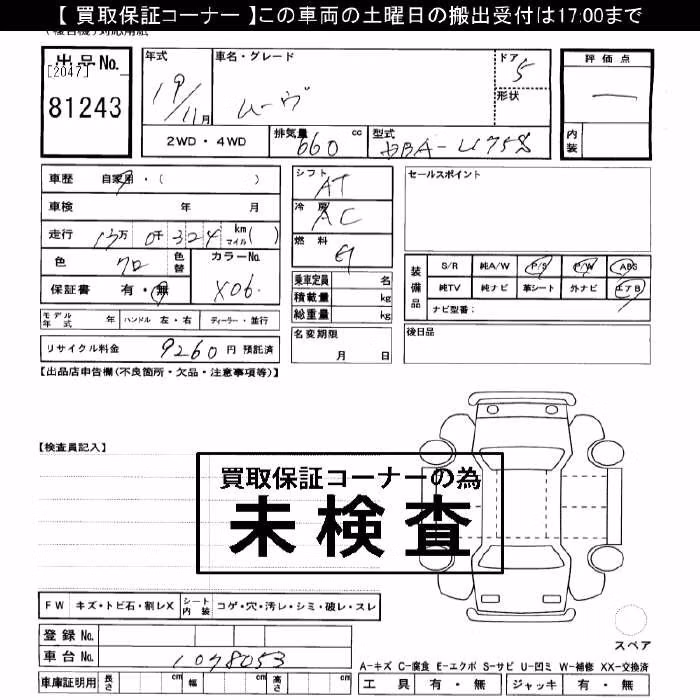 【 買取保証コーナー 】この車両の土曜日の搬出受付は17:00まで
出品No.
[2047]
81243
年式
19/11月
車名・グレード
ムーヴ
ドア
5
形状
評価点
内装
2WD・4WD
排気量 660 cc
型式 DBA-L175S
車歴 自家用・( )
車検 年 月
走行 13万0千324 km マイル( )
色 クロ 色替 カラーNo. X06
保証書 有・無
シフト AT
冷房 AC
燃料 G
セールスポイント
乗車定員 名
積載量 kg
総重量 kg
装備品
S/R 純A/W P/S P/W ABS
純TV 純ナビ 革シート 外ナビ エアB
ナビ型番:
モデル年式 年 ハンドル 左・右 ディーラー・並行
名変期限 月 日
後日品
リサイクル料金 9260 円 預託済
【出品店申告欄(不良箇所・欠品・注意事項等)】
【検査員記入】
買取保証コーナーの為
未検査
FW キズ・トビ石・割レX シート内装 コゲ・穴・汚レ・シミ・破レ・スレ
登録No.
車台No. 1078053
車庫証明用 長さ cm 幅 cm 高さ cm
スペア
A-キズ C-腐食 E-エクボ S-サビ U-凹ミ W-補修 XX-交換済
工具 有・無 ジャッキ 有・無